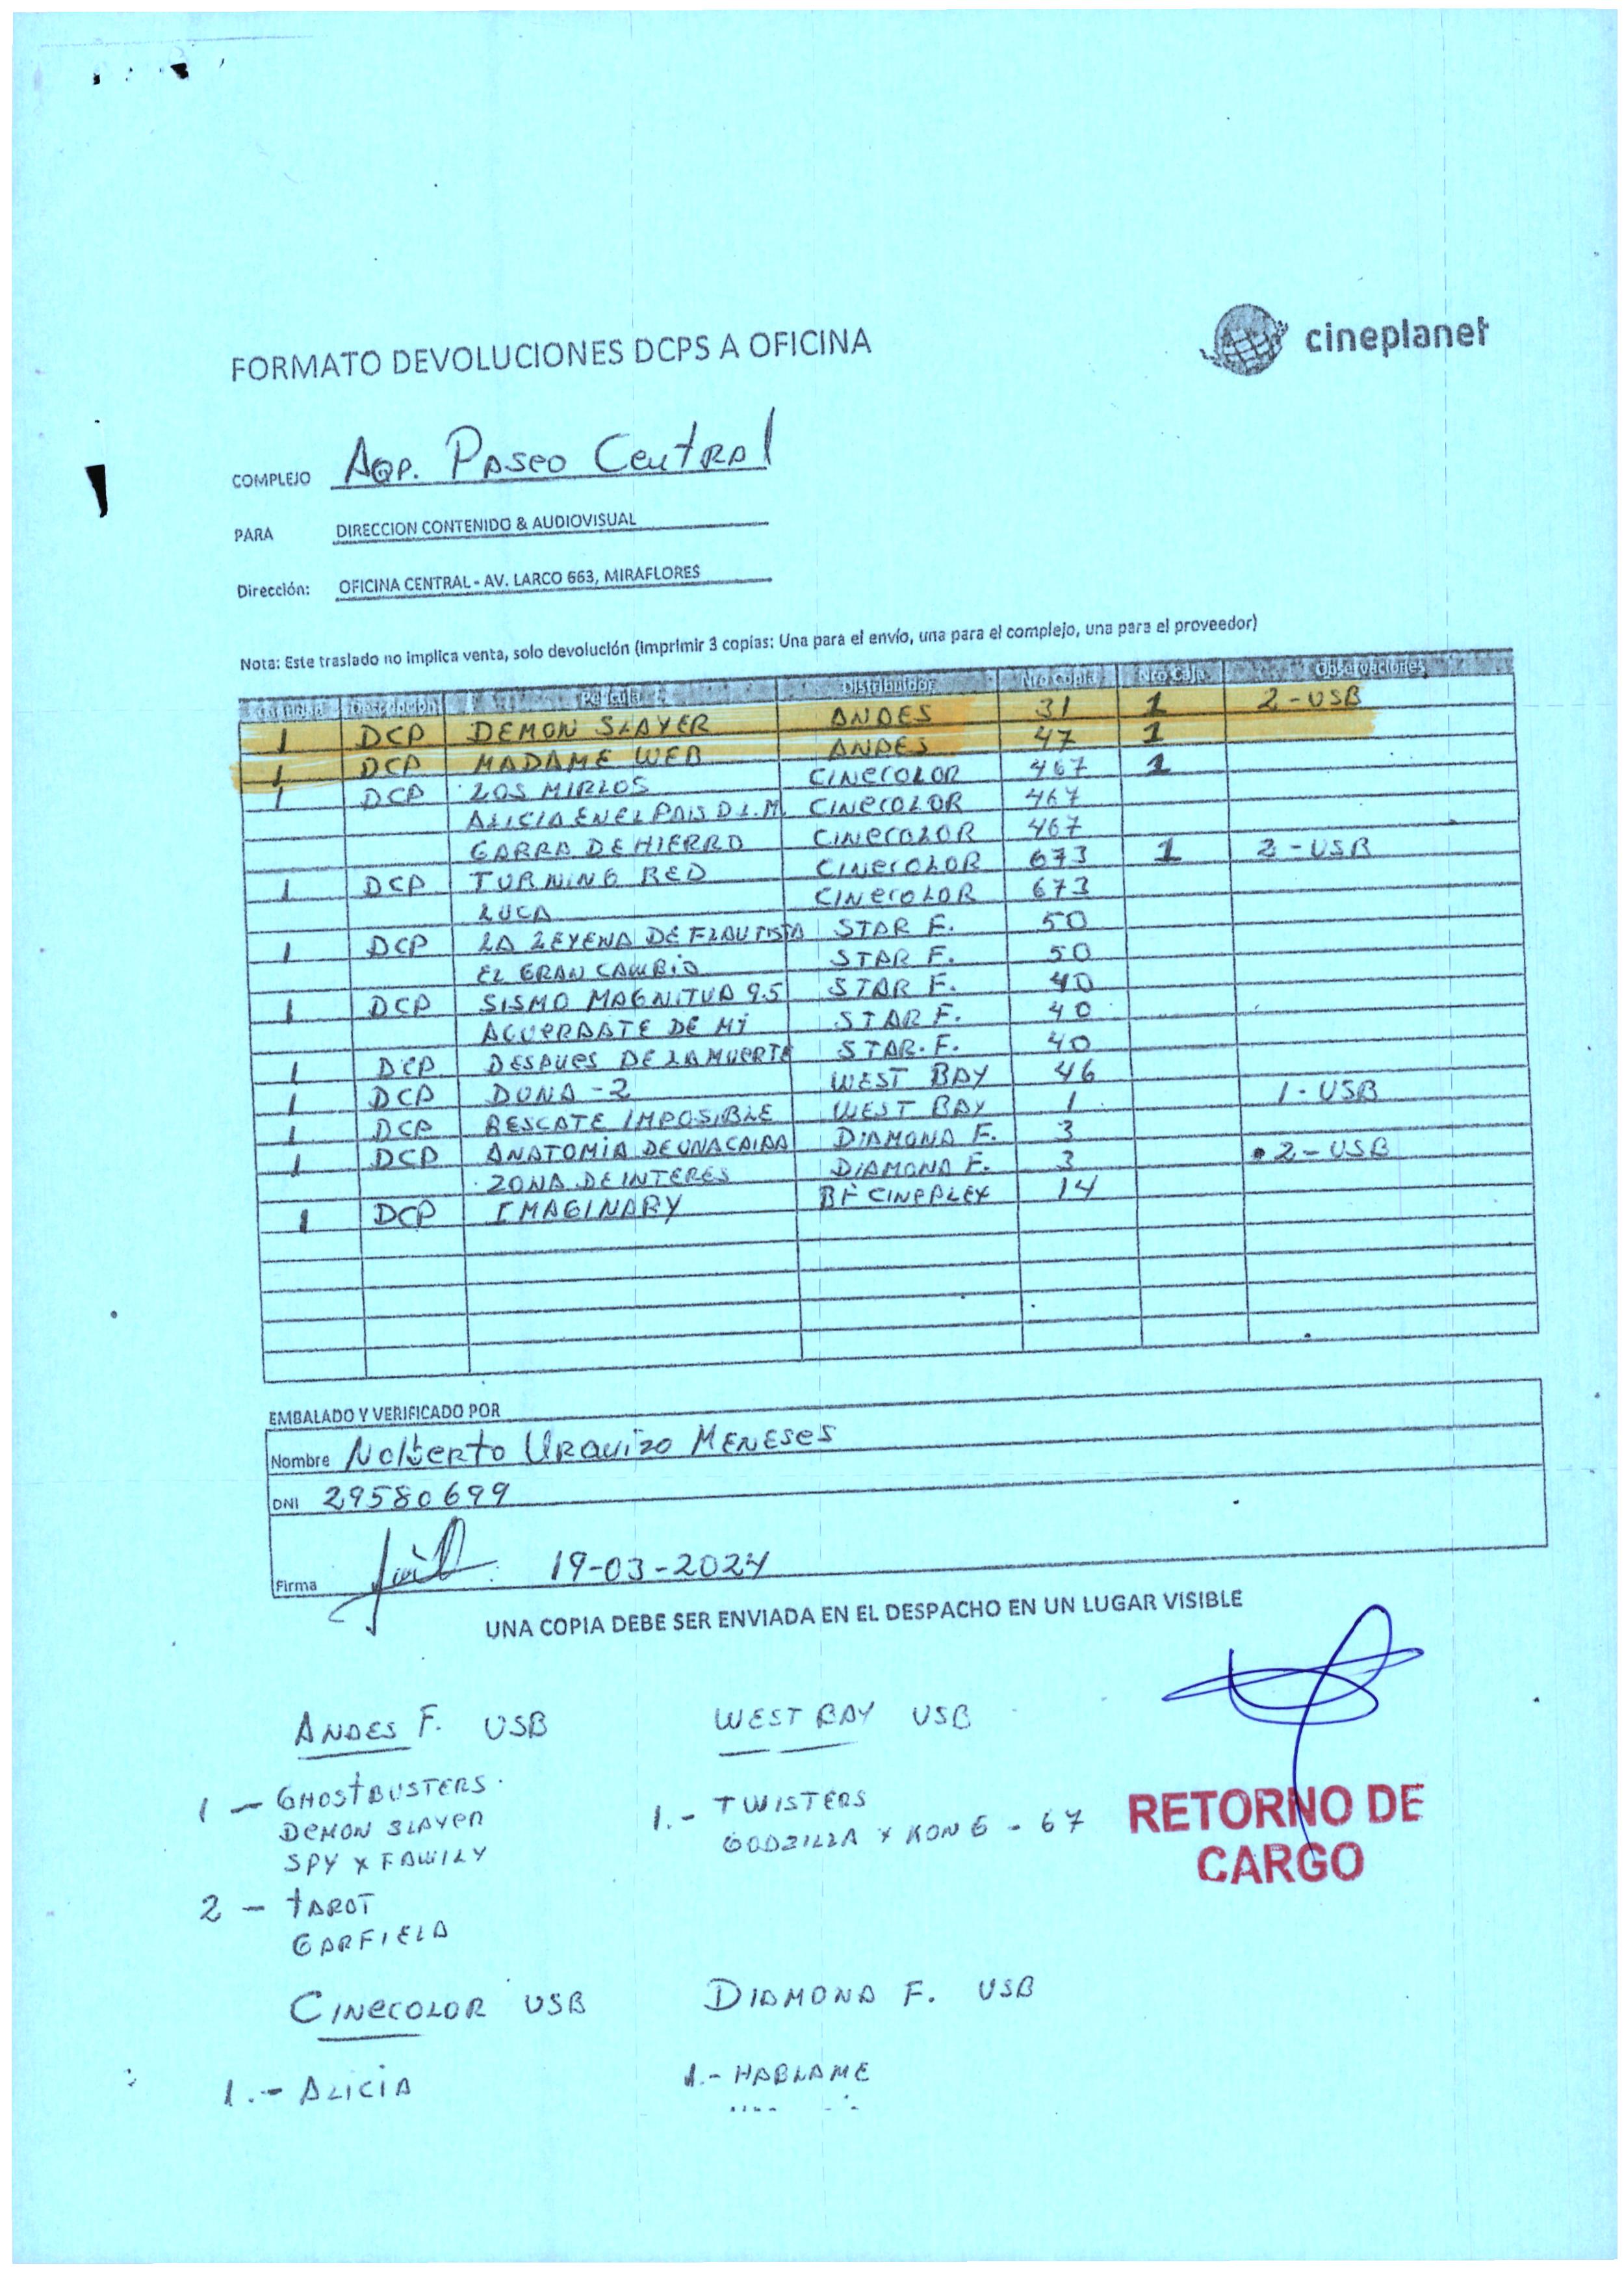 FORMATO DEVOLUCIONES DCPS A OFICINA
cineplanet
COMPLEJO AQP. PASEO CENTRAL
PARA DIRECCION CONTENIDO & AUDIOVISUAL
Dirección: OFICINA CENTRAL - AV. LARCO 663, MIRAFLORES
Nota: Este traslado no implica venta, solo devolución (Imprimir 3 copias: Una para el envío, una para el complejo, una para el proveedor)
Cantidad Descripción Película Distribuidor Nro Copia Nro Caja Observaciones
1 DCP DEMON SLAYER ANDES 31 1 2-USB
1 DCP MADAME WEB ANDES 47 1
1 DCP LOS MIRLOS CINECOLOR 467 1
ALICIA EN EL PAIS D.L.M. CINECOLOR 467
GARRA DE HIERRO CINECOLOR 467
1 DCP TURNING RED CINECOLOR 673 1 2-USB
LUCA CINECOLOR 673
1 DCP LA LEYENA DE FLAUTISTA STAR F. 50
EL GRAN CAMBIO STAR F. 50
1 DCP SISMO MAGNITUD 9.5 STAR F. 40
ACUERDATE DE MI STAR F. 40
1 DCP DESPUES DE LA MUERTE STAR. F. 40
1 DCP DUNA -2 WEST BAY 46
1 DCP RESCATE IMPOSIBLE WEST BAY 1 1-USB
1 DCP ANATOMIA DE UNA CAIDA DIAMOND F. 3
ZONA DE INTERES DIAMOND F. 3 2-USB
1 DCP IMAGINARY BF CINEPLEX 14
EMBALADO Y VERIFICADO POR
Nombre NOLBERTO URQUIZO MENESES
DNI 29580699
Firma 19-03-2024
UNA COPIA DEBE SER ENVIADA EN EL DESPACHO EN UN LUGAR VISIBLE
ANDES F. USB
1 - GHOSTBUSTERS.
DEMON SLAYER
SPY X FAMILY
2 - TAROT
GARFIELD
WEST BAY USB
1.- TWISTERS
GODZILLA X KONG - 67
RETORNO DE
CARGO
CINECOLOR USB
1.- ALICIA
DIAMOND F. USB
1.- HABLAME